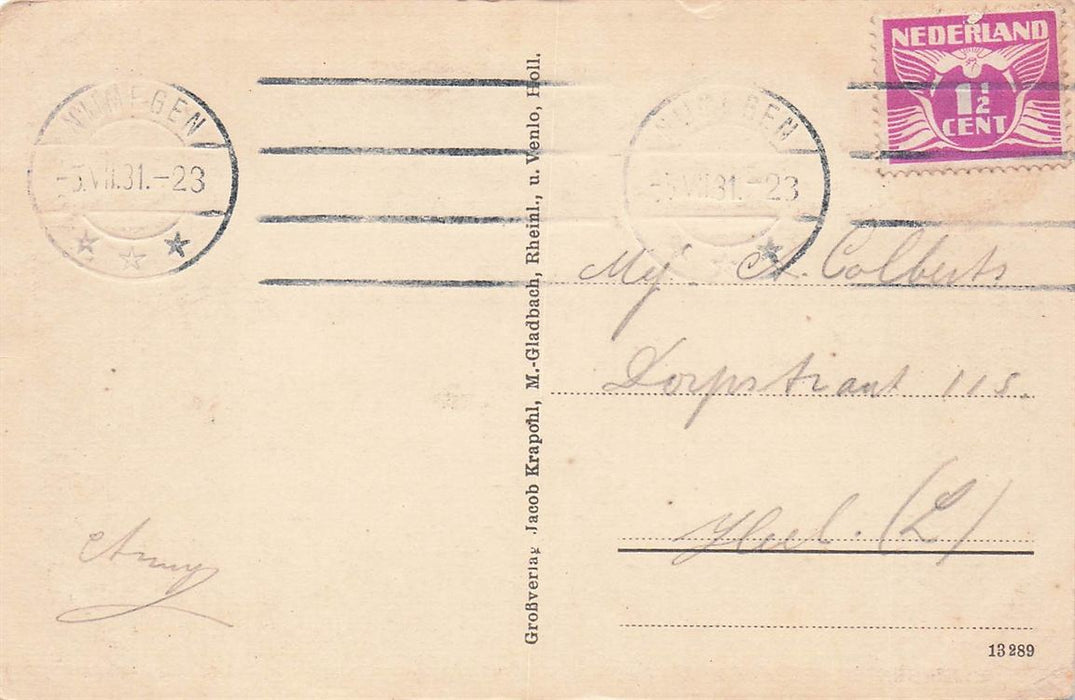 NEDERLAND
1½
CENT
NIJMEGEN
-5.VII.31.-23
NIJMEGEN
-5.VII.31.-23
Mej. A. Colberts
Dorpstraat 115.
Heel. (L)
Anny
Großverlag Jacob Krapohl, M.-Gladbach, Rheinl., u. Venlo, Holl.
13289